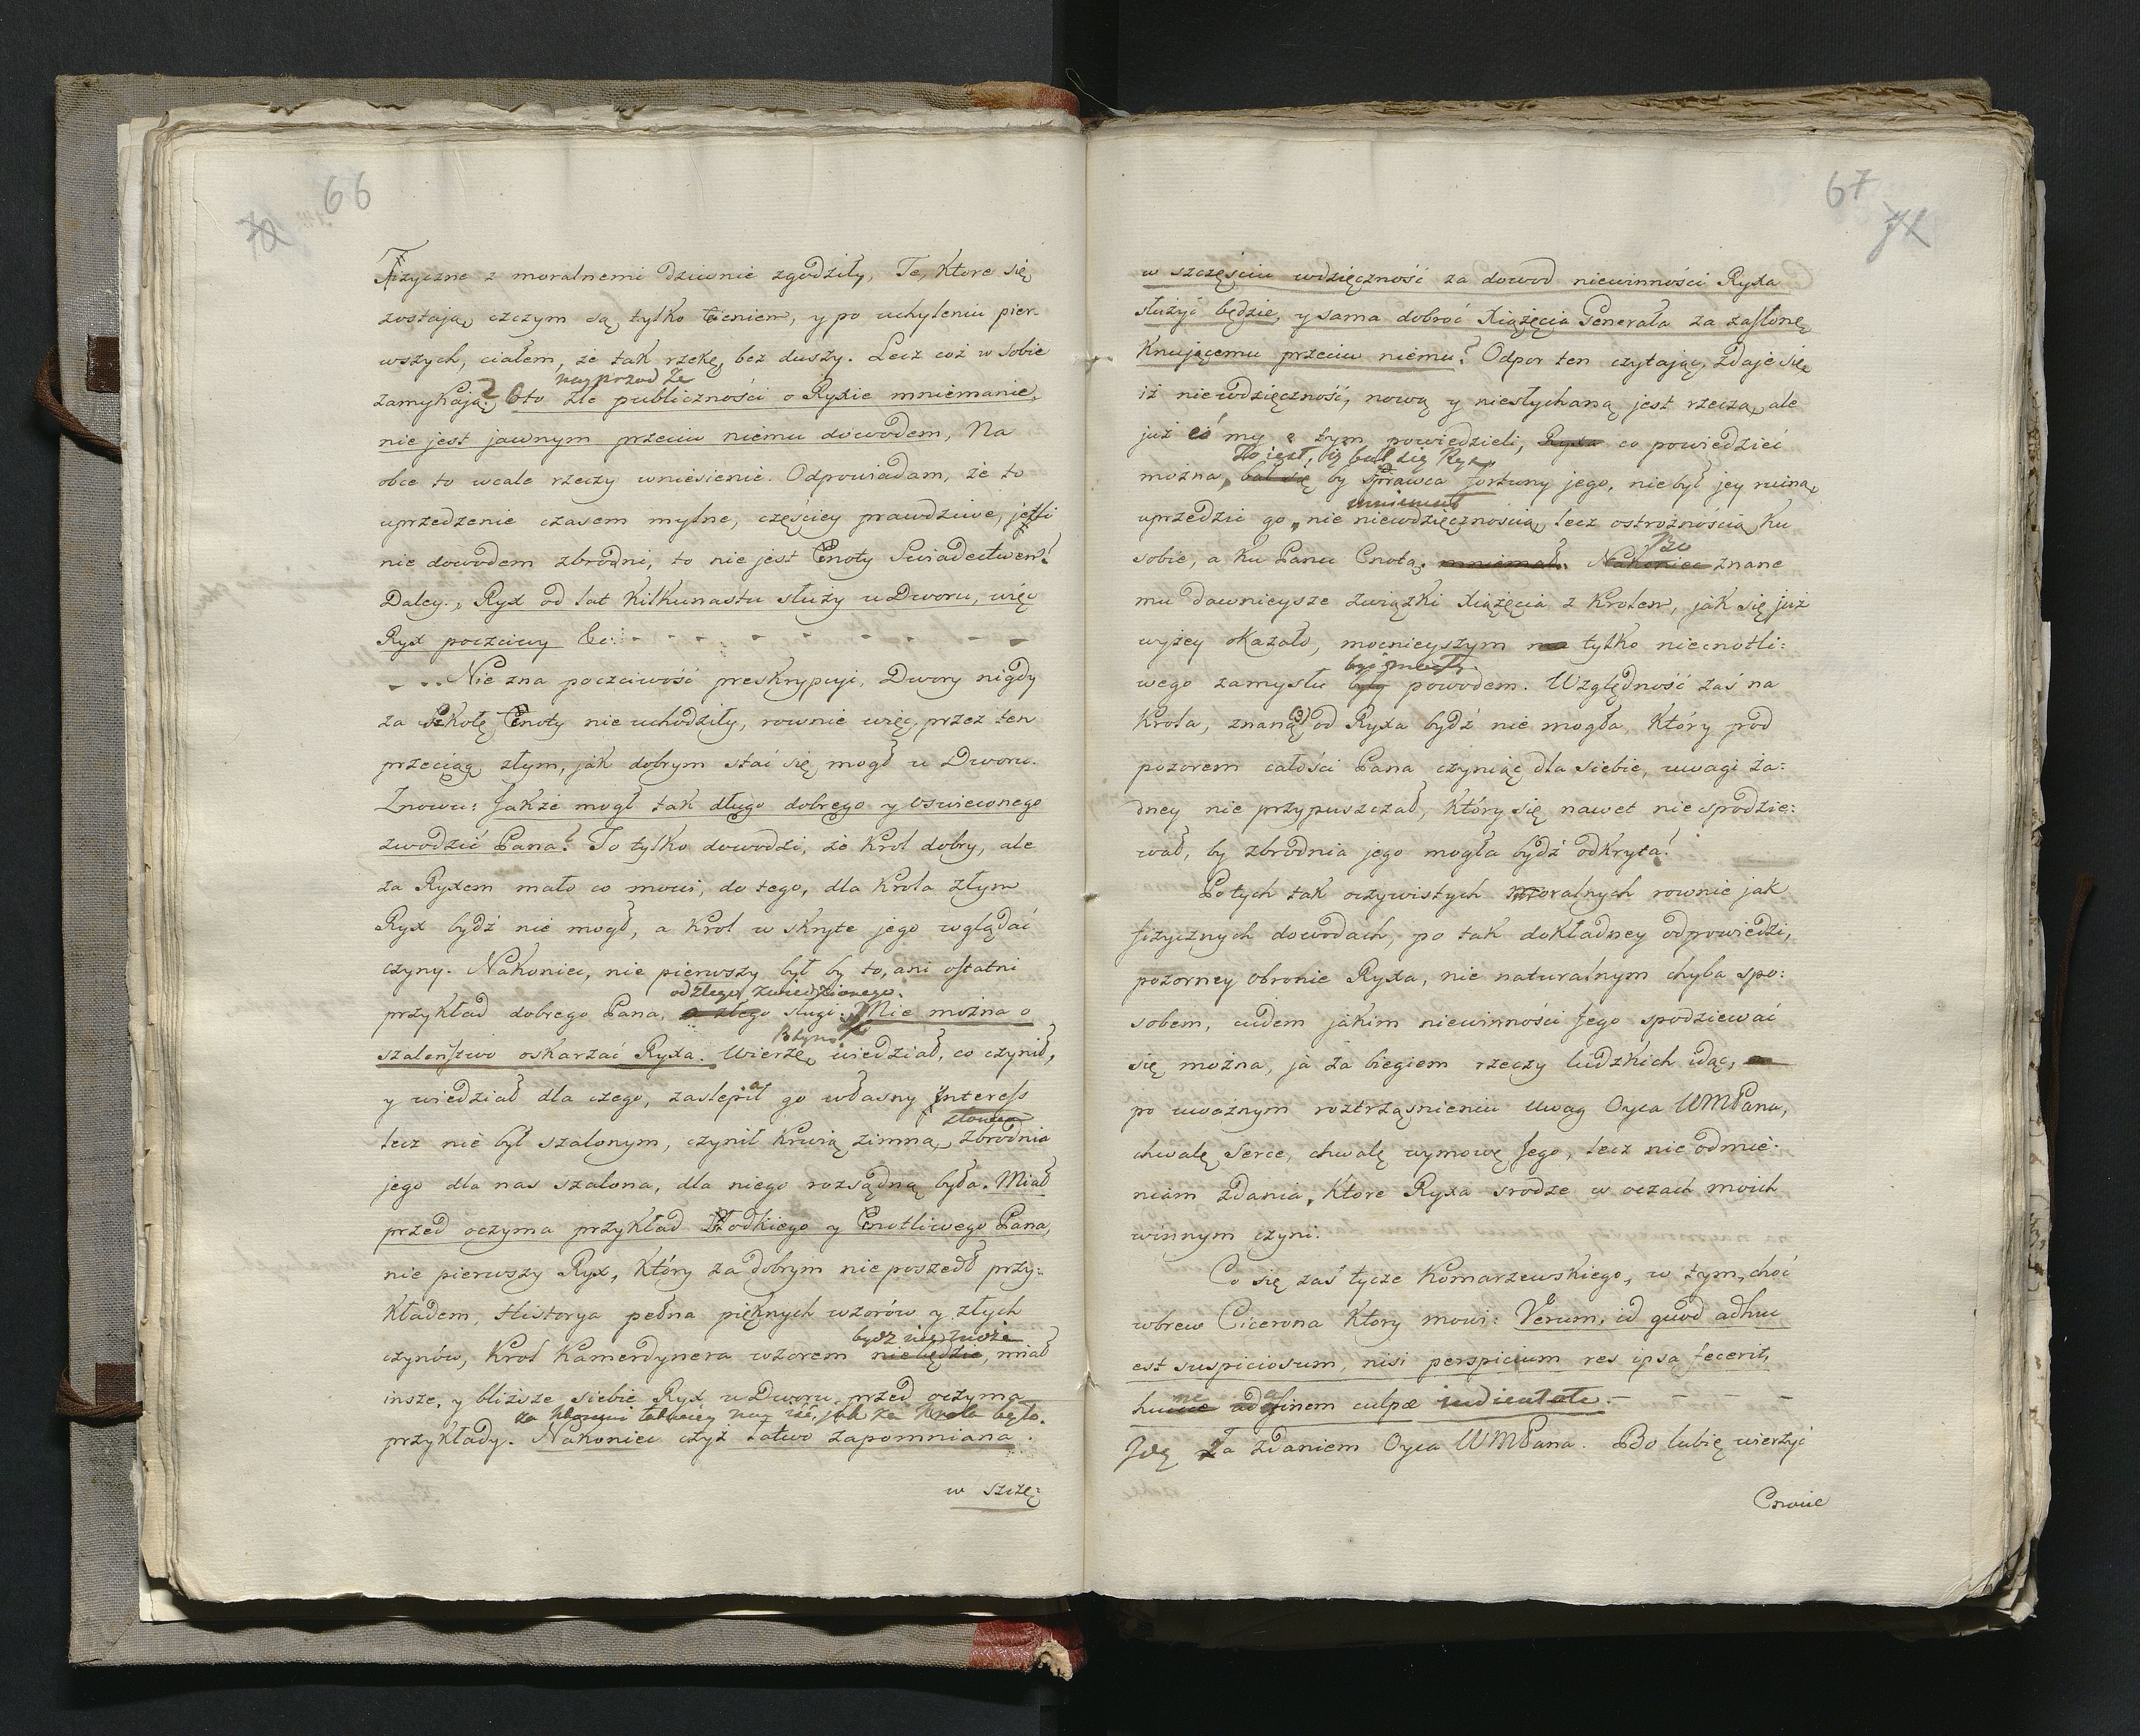 66
70
Fizyczne z moralnemi dziwnie zgodziły, Te, ktore się
zostają, czczym są tylko cieniem, y po uchyleniu pier-
wszych, ciałem, że tak rzekę, bez duszy. Lecz coż w sobie
nayprzod że
zamykają? Oto złe publiczności o Ryxie mniemanie,
nie jest jawnym przeciw niemu dowodem, Na
obce to wcale rzeczy wniesienie. Odpowiadam, że to
uprzedzenie czasem mylne, częściey prawdziwe, jeżli
nie dowodem zbrodni, to nie jest Cnoty Swiadectwem!
Daley. Ryx od lat kilkunastu służy u Dworu, więc
Ryx poczciwy &c: - - - - - - - -
- .. Nie zna poczciwość preskrypcyi, Dwory nigdy
za szkołę Cnoty nie uchodziły, rownie więc, przez ten
przeciąg złym, jak dobrym stać się mogł u Dworu.
Znowu: Jakże mogł tak długo dobrego y oswieconego
zwodzić Pana? To tylko dowodzi, że Krol dobry, ale
za Ryxem mało co mowi, do tego, dla Krola złym
Ryx bydź nie mogł, a Krol w skryte jego wglądać
czyny. Nakoniec, nie pierwszy był by to, ani ostatni
od złego zwiedzionego.
przykład dobrego Pana, a złego sługi. Nie można o
szaleństwo oskarzać Ryxa. Wierzę, wiedział, co czynił,
y wiedział dla czego, zaslepiał go własny interess
lecz nie był szalonym, czynił krwią zimną, zbrodnia
jego dla nas szalona, dla niego rozsądną była. Miał
przed oczyma przykład słodkiego y Cnotliwego Pana,
nie pierwszy Ryx, który za dobrym nie poszedł przy:
kładem, Historya pełna pięknych wzorów y złych
bydz nie może
czynów, Krol Kamerdynera wzorem nie będzie, miał
insze, y bliższe siebie Ryx u Dworu przed oczyma
za ktoremi łatwiey mu iść, jak za Krola było.
przykłady. Nakoniec czyż łatwo zapomniana
w szczę:
67
71
w szczęściu wdzięczność za dowod niewinności Ryxa
służyć będzie, y sama dobroć Xiążęcia Generała za zasłonę
knującemu przeciw niemu? Odpor ten czytając, zdaje się,
iż niewdzięczność, nową y niesłychaną jest rzeczą, ale
już co my o tym powiedzieli, Ryxa co powiedzieć
To jest, iż bał się Ryx,
można, bał się by sprawca fortuny jego, nie był jey ruiną,
mniemał
uprzedzić go, nie niewdzięcznoscią, lecz ostrożnością ku
Bo
sobie, a ku Panu Cnotą. mniemał. Nakoniec znane
mu dawnieysze związki Xiążęcia z Krolem, jak się już
wyżey okazało, mocnieyszym tylko niecnotli:
być miały
wego zamysłu były powodem. Względność zaś na
Krola, znaną od Ryxa bydź nie mogła, Który pod
pozorem całości Pana czyniąc dla siebie, uwagi ża:
dney nie przypuszczał, Który się nawet nie spodzie:
wał, by zbrodnia jego mogła bydź odkryta!
Po tych tak oczywistych moralnych rownie jak
fizycznych dowodach, po tak dokładney odpowiedzi,
pozorney obronie Ryxa, nie naturalnym chyba spo:
sobem, cudem jakim niewinności Jego spodziewać
się można, ja za biegiem rzeczy ludzkich idąc,
po uważnym roztrząsnieniu Uwag Oyca WMPana,
chwalę Serce, chwalę wymowę Jego, lecz nie odmie:
niam zdania, Ktore Ryxa srodze w oczach moich
winnym czyni.
Co się zaś tycze Komarzewskiego, w tym, choć
wbrew Cicerona Który mowi: Verum, id quod adhuc
est suspiciosum, nisi perspicuum res ipsa fecerit,
hunc adfinem culpæ iudicatote. - - - -
Idę Za zdaniem Oyca WMPana. Bo lubię wierzyć
Cnocie